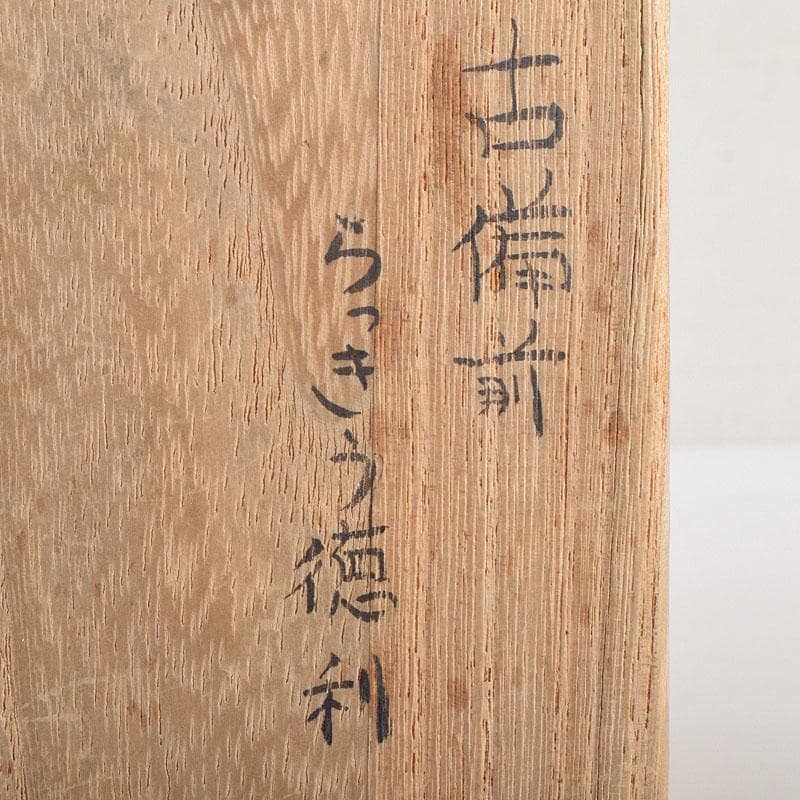 古備前
らっきう徳利